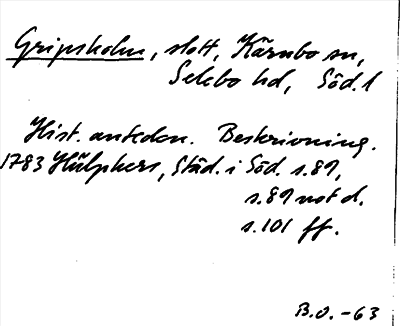 Gripsholm, slott, Kärnbo sn,
Selebo hd, Söd. l
Hist. anteckn. Beskrivning.
1783 Hülphers, Städ. i Söd. s. 89,
s. 89 not d.
s. 101 ff.
B.O. -63